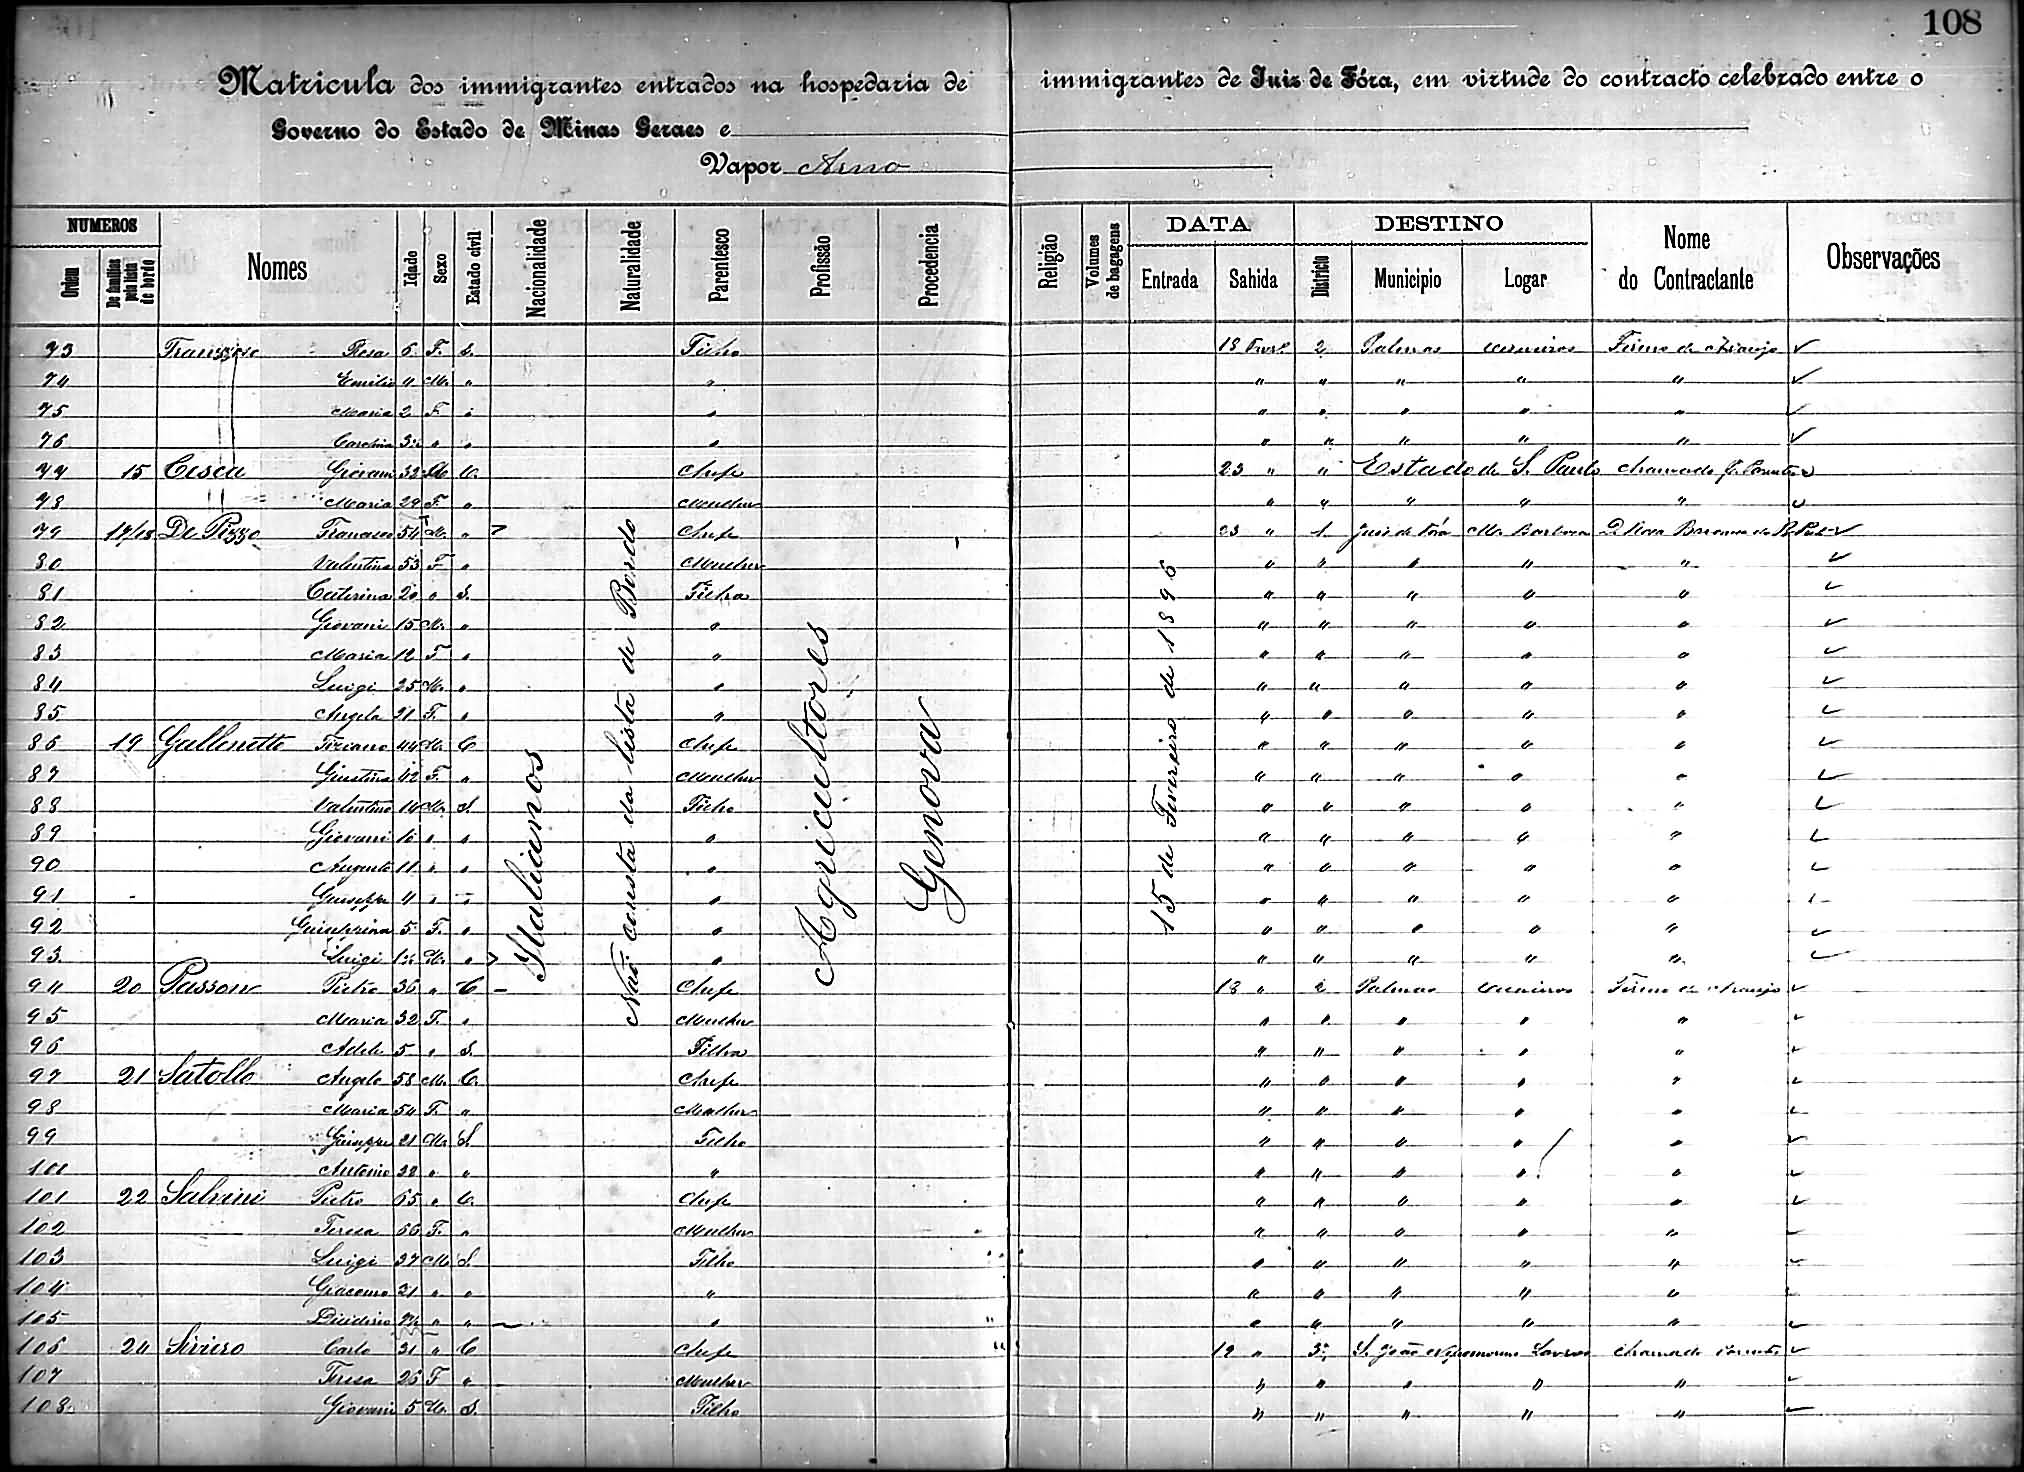 108
Matricula dos immigrantes entrados na hospedaria de immigrantes de Juiz de Fóra, em virtude do contracto celebrado entre o
Governo do Estado de Minas Geraes e
Vapor Arno
NUMEROS DATA DESTINO
Ordem De familias pela lista de bordo Nomes Idade Sexo Estado civil Nacionalidade Naturalidade Parentesco Profissão Procedencia Religião Volumes de bagagens Entrada Sahida Districto Municipio Logar Nome do Contractante Observações
Italianos
Não consta da lista de Bordo
Agricultores
Genova
15 de Fevereiro de 1896
73 Rosa 6 F. S. Filho 18 2 Palmas Firmo de Araujo ✓
74 Emilio 4 M. " " " " " " " ✓
75 Maria 2 F. " " " " " " " ✓
76 " " " " " " " " ✓
77 15 Cesca Giovani 32 M C. Chefe 23 " " Estado de S. Paulo chamado
78 Maria 29 F. " Mulher " " " " "
79 17/18 De Pizzo Francesco 54 M. " Chefe 23 " 1 Juiz de Fóra M. Barbosa ✓
80 Valentina 53 F " Mulher " " " " " ✓
81 Caterina 20 " S. Filha " " " " " ✓
82 Giovani 15 M. " " " " " " " ✓
83 Maria 12 F " " " " " " " ✓
84 Luigi 25 M. " " " " " " " ✓
85 Angela 21 F. " " " " " " " ✓
86 19 Gallenetto Tiziano 44 M. C Chefe " " " " " ✓
87 Giustina 42 F. " Mulher " " " " " ✓
88 Valentino 14 M. S Filho " " " " " ✓
89 Giovanni " " " " " " " " ✓
90 Augusto 11 " " " " " " " " ✓
91 Giuseppe 4 " " " " " " " "
92 Giuseppina 5 F. " " " " " " " ✓
93 Luigi M. " " " " " " " ✓
94 20 Passon Pietro 36 " C Chefe 18 " 2 Palmas Firmo de Araujo ✓
95 Maria 32 F. " Mulher " " " " " ✓
96 Adele 5 " S. Filha " " " " " ✓
97 21 Satollo Angelo 58 M. C. Chefe " " " " " ✓
98 Maria 54 F. " Mulher " " " " " ✓
99 Giuseppe 21 M. S Filho " " " " " ✓
101 Antonio " " " " " " " " ✓
101 22 Pietro 65 " C. Chefe " " " " " ✓
102 Teresa 66 F. " Mulher " " " " " ✓
103 Luigi 37 M S. Filho " " " " " ✓
104 Giacomo 21 " " " " " " " " ✓
105 " " " " " " " " ✓
106 24 Siviero Carlo 31 " C Chefe 19 " 3º S. João Nepomuceno chamado parente ✓
107 Teresa 26 F " Mulher " " " " " ✓
108 Giovani 5 M. S. Filho " " " " " ✓